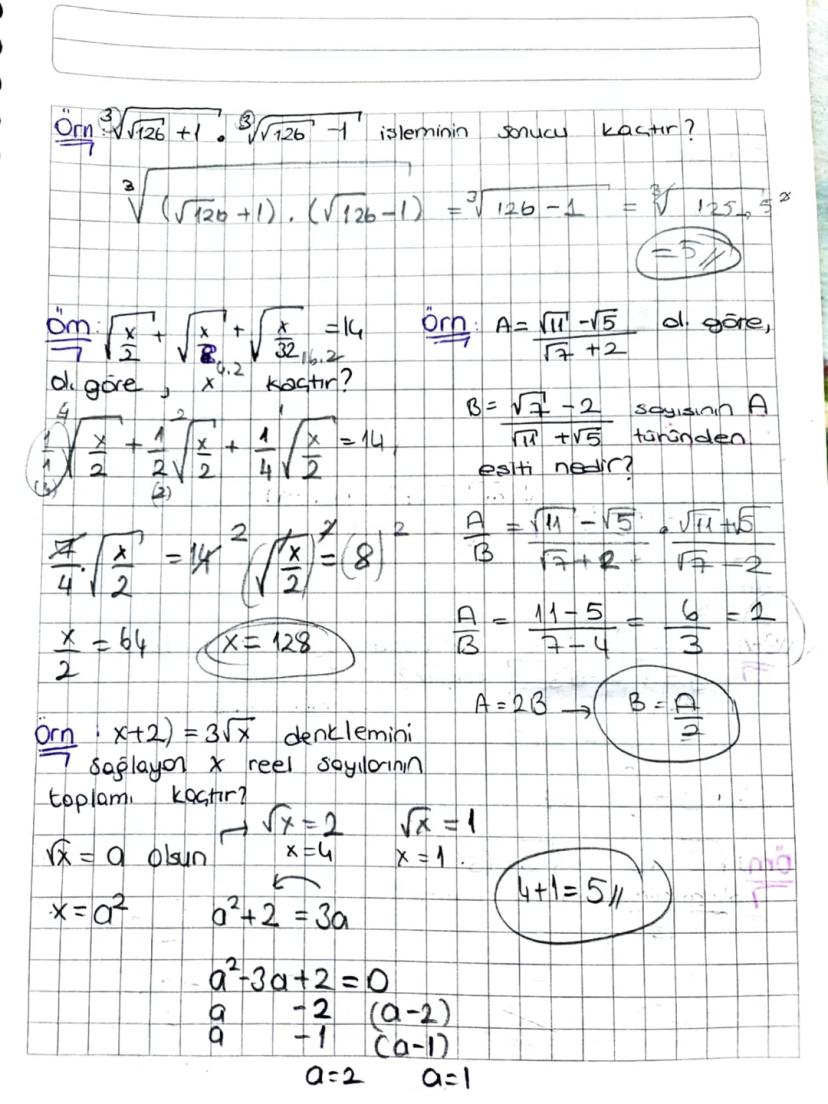 Örn: ∛(√126 + 1) . ∛(√126 - 1) işleminin sonucu kaçtır?
∛((√126+1) . (√126-1)) = ∛(126-1) = ∛(125→5³)
=5//
Örn: √(x/2) + √(x/8) + √(x/32) =14
4.2 16.2
d. göre, x kaçtır?
4 2 1
1/1 √(x/2) + 1/2 √(x/2) + 1/4 √(x/2) = 14
(4) (2)
7/4 . √(x/2) = 14 2 (√(x/2))² = (8)²
x/2 = 64 x = 128
Örn: A = (√11 - √5)/(√7 + 2) d. göre,
B = (√7 - 2)/(√11 + √5) sayısının A
türünden
eşiti nedir?
A/B = (√11 - √5)/(√7 + 2) . (√11 + √5)/(√7 - 2)
A/B = (11-5)/(7-4) = 6/3 = 2
A = 2B → B = A/2
Örn: x+2) = 3√x denklemini
sağlayan x reel sayılarının
toplamı kaçtır?
√x = a olsun → √x = 2 √x = 1
x=4 x = 1
x = a² a²+2 = 3a
4+1=5//
a²-3a+2=0
a -2 (a-2)
a -1 (a-1)
a=2 a=1